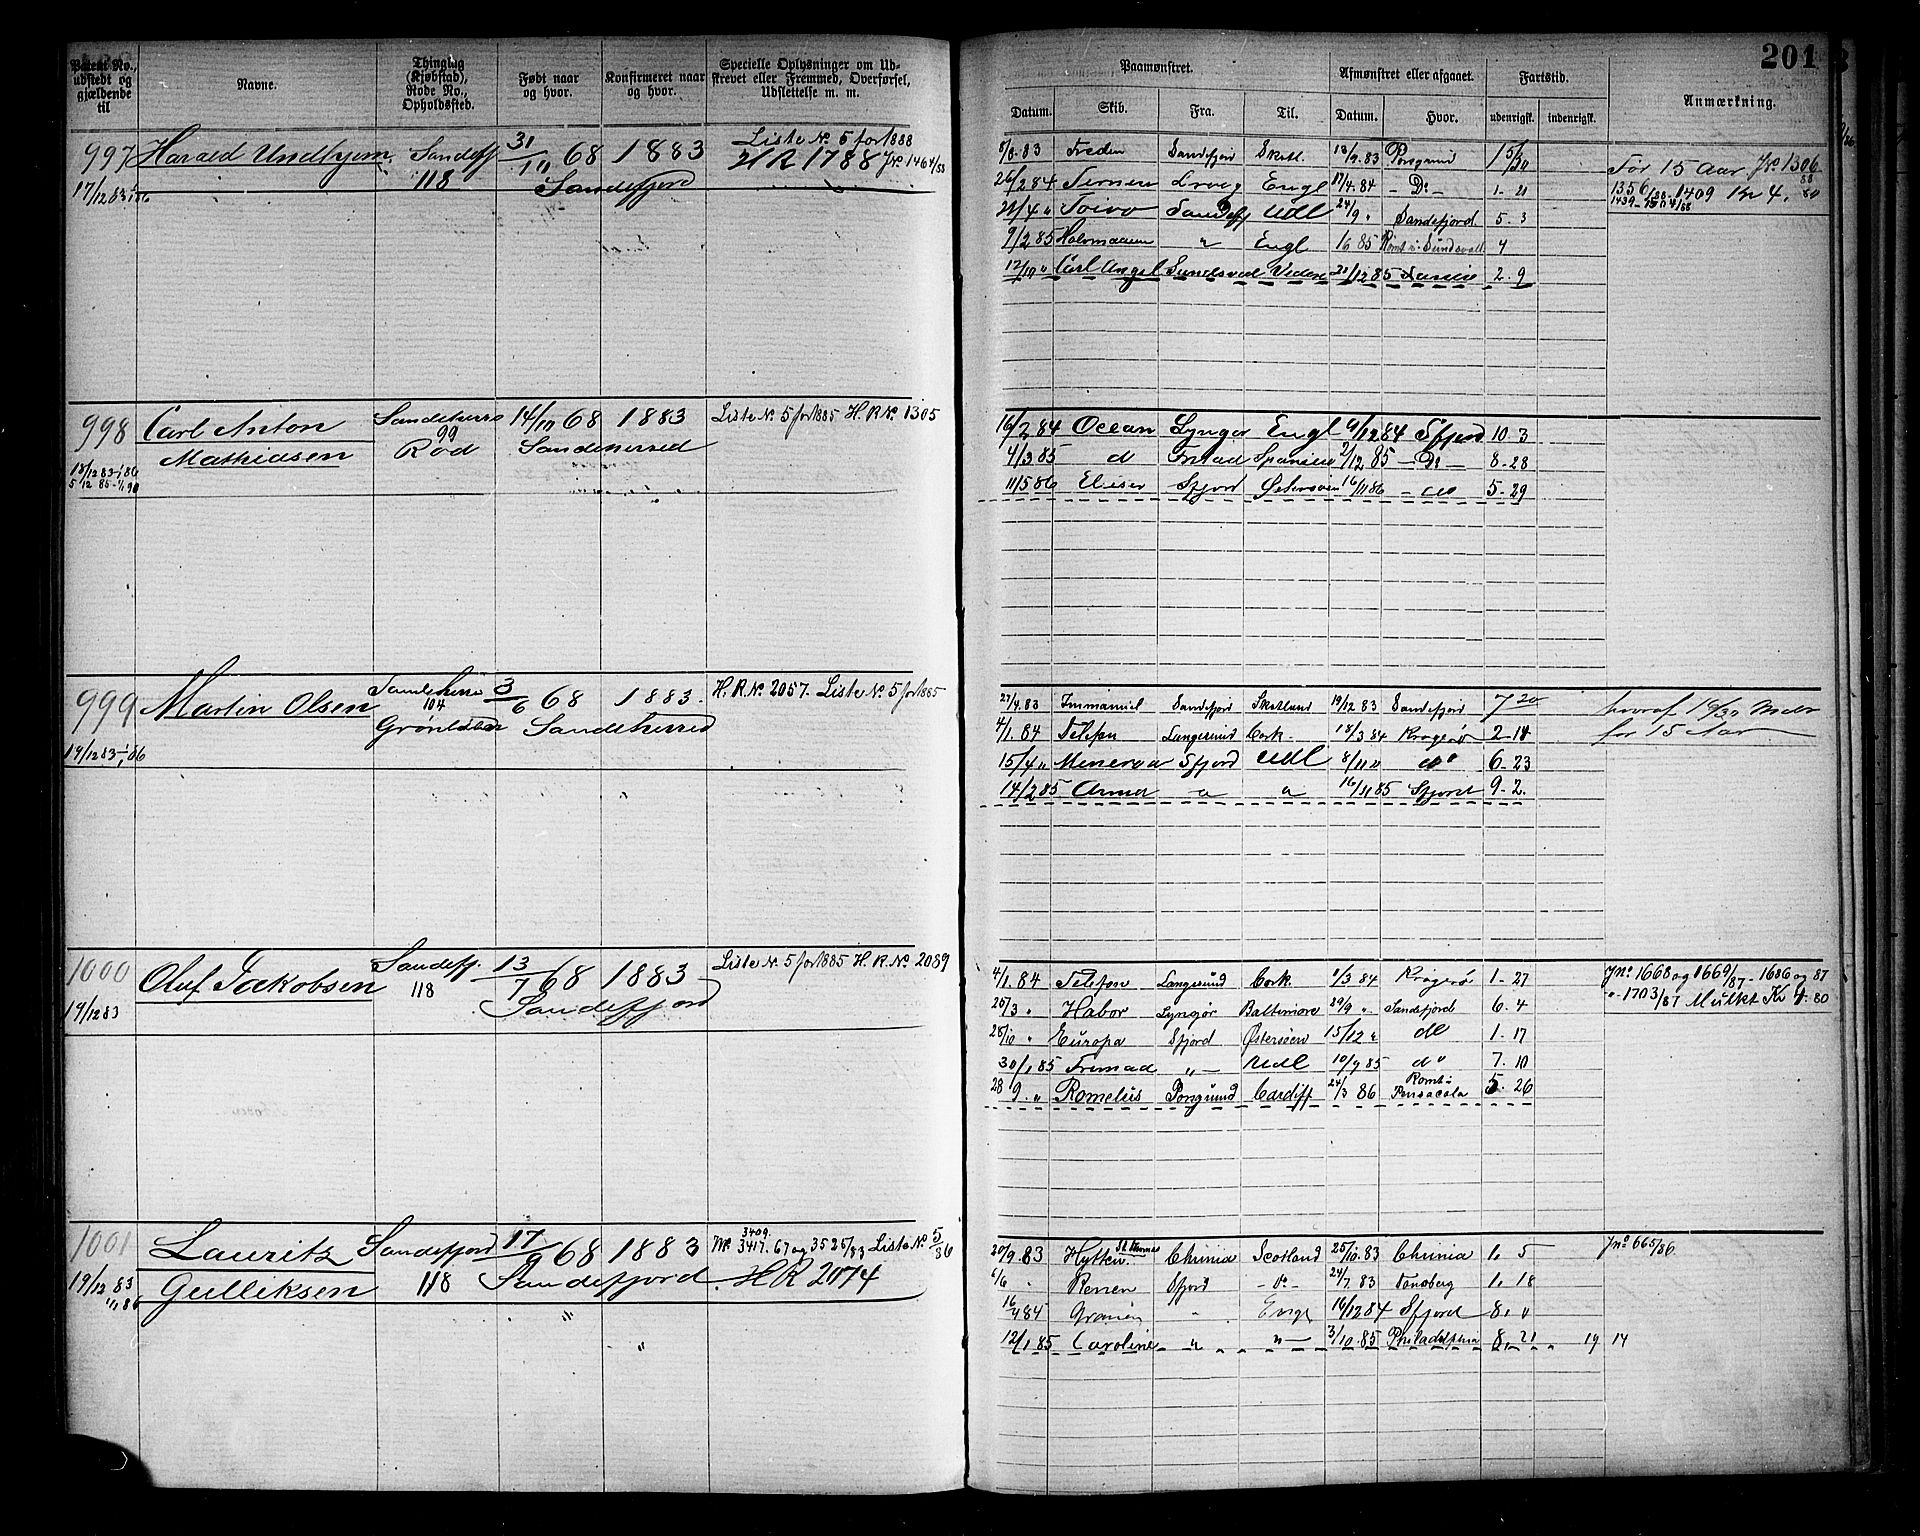 201
Patent No., udstedt og gjældende til
Navne.
Thinglig (Kjøbstad), Rode No., Opholdssted.
Født naar og hvor.
Konfirmeret naar og hvor.
Specielle Oplysninger om Udskrevet eller Fremmed, Overførsel, Udslettelse m. m.
Paamønstret.
Afmønstret eller afgaaet.
Fartstid.
Anmærkning.
Datum. Skib. Fra. Til. Datum. Hvor. udenrigsk. indenrigsk.
997 Harald Undhjem Sandeff 31/11 68 1883 Liste No. 5 for 1888
118 Sandefjord HR 1788 Jno. 1464/88
17/12 83
8/8.83 Freden Sandefjord Skotl. 83 Porsgrund
For 15 Aar Jno. 1306/88
26/2 84 Ternen Engl 17/4.84 - Do - 1 - 21
1356/88 - 1409 Kr 4. 80
22/4 " Toivo Sandeff Udl 24/9 " Sandefjord 5. 3
9/2 85 " Engl 85 Sundsvall 4
12/10 " Carl Angel Sundsval 21/12 85 2. 9
998 Carl Anton Sandeherre 14/10 68 1883 Liste No. 5 for 1885 H. R. No. 1305
Mathiasen 99 Rød Sandeherred
18/12 83 - 1/1 86
5/12 85 - 1/1 90
16/2 84 Ocean Lyngør Engl 9/12 84 Sfjord 10. 3
4/3 85 d Spanien 2/12 85 - Do - 8 - 28
11/5 86 Elieser Sfjord 16/11 86 - do 5 - 29
999 Martin Olsen Sandeherre 3/6 68 1883. H. R. No. 2057. Liste No. 5 for 1885
104
Sandeherred
19/12 83 - 1/1 86
27/4. 83 Immanuel Sandefjord Skotland 19/12 83 Sandefjord 7 20
hvoraf
for 15 Aar
4/1. 84 Telefon Langesund Cork. 18/3 84 Kragerø
15/4 " Minerva Sfjord Udl 8/11 " do 6 - 23
14/2 85 Anna " " 16/11 85 Sfjord 9 - 2.
1000 Oluf Jakobsen Sandeff. 13/7 68 1883 Liste No. 5 for 1885 H. R. No. 2089
118 Sandefjord
19/12 83
4/1. 84 Telefon Langesund Cork. 1/3 84 Kragerø 1. 27
Jno. 1668 og 1669/87 - 1686 og 87
" - 1703/87 Mulkt Kr 80
20/3 " Habor Lyngør Baltimore 29/9 " Sandefjord 6. 4
28/10 " Europa Sfjord Østersøen 15/12 " do 1. 17
30/1 85 Fremad " - Udl 10/9 85 do 7. 10
28/9. " Romelus Porsgrund Cardiff 24/3 86 Rømt i Pensacola 5. 26
1001 Lauritz Sandefjord 17/9 68 1883 3409. 3417. 67 og 3525/83 Liste No. 5/86
Gulliksen 118 Sandefjord HR 2074
19/12 83
1/1 86
20/9. 83 Hytten St. Thomas Chrinia Scotland 25/10. 83 Chrinia 1. 5
Jno. 665/86
6/6 " Renen Sfjord - Do - 24/7 83 Tønsberg 1. 18
16/4 84 " Engl 16/12 84 Sfjord 8. "
12/1. 85 Caroline " " - 3/10. 85 Philadelphia 8. 21 19 14